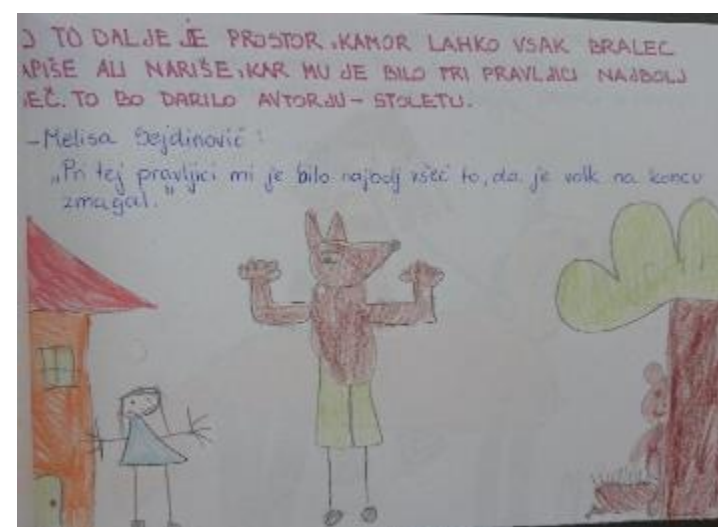 TO DALJE JE PROSTOR, KAMOR LAHKO VSAK BRALEC
APIŠE ALI NARIŠE, KAR MU JE BILO PRI PRAVLJICI NAJBOLJ
EČ. TO BO DARILO AVTORJU - STOLETU.
- Melisa Sejdinović:
"Pri tej pravljici mi je bilo najbolj všeč to, da je volk na koncu
zmagal."